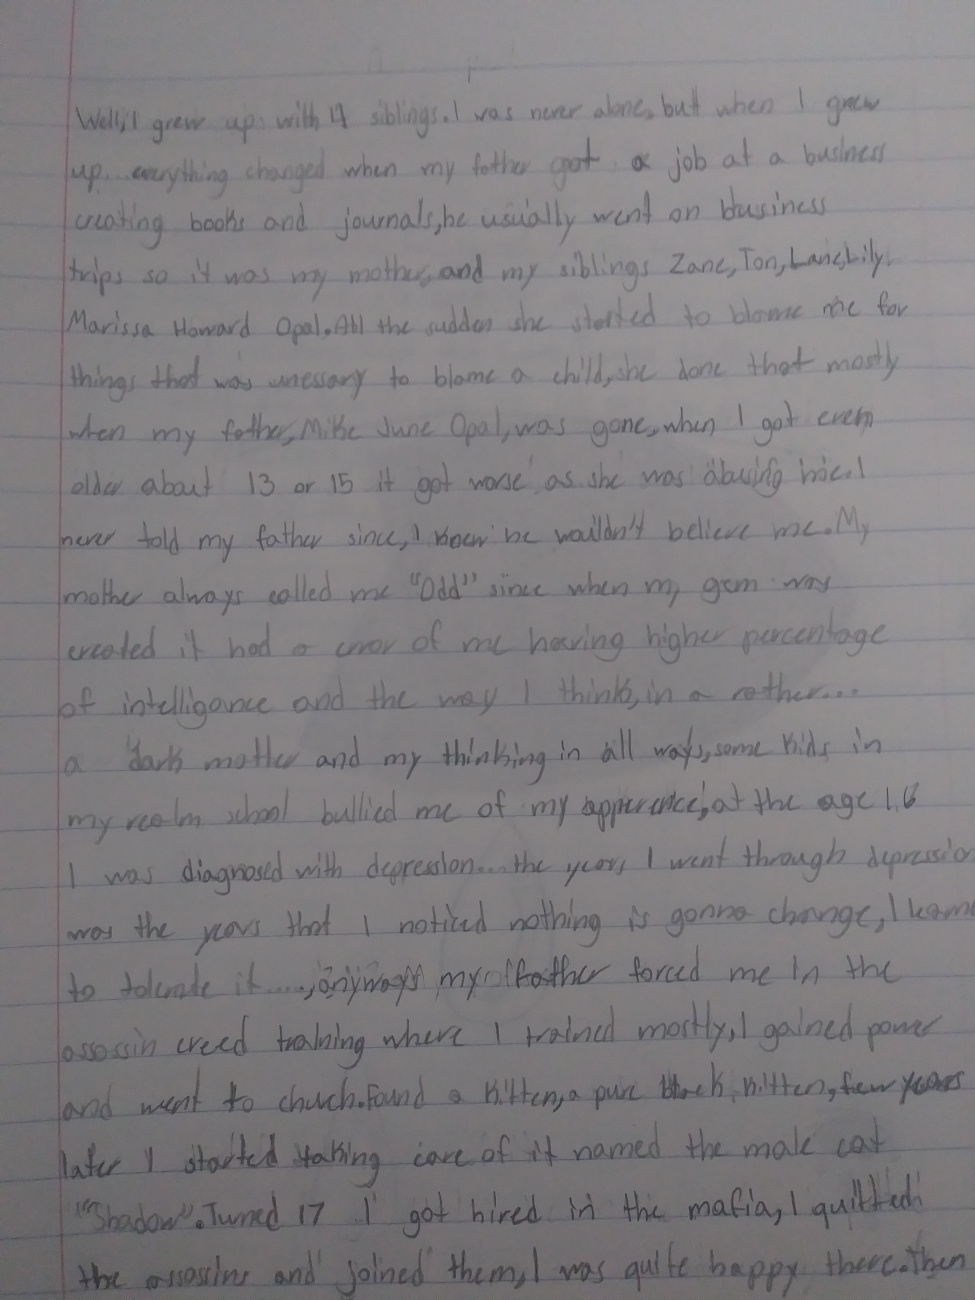 Well, I grew up with 4 siblings. I was never alone, but when I grew
up... everything changed when my father got a job at a business
creating books and journals, he usually went on business
trips so it was my mother, and my siblings Zane, Ton, Lane, Lily
Marissa Howard Opal. All the sudden she started to blame me for
things that was unessary to blame a child, she done that mostly
when my father, Mike June Opal, was gone, when I got even
older about 13 or 15 it got worse as she was abusing me. I
never told my father since, I know he wouldn't believe me. My
mother always called me "Odd" since when my gem was
created it had a error of me having higher percentage
of intelligance and the way I think, in a rather...
a dark matter and my thinking in all ways, some kids in
my realm school bullied me of my apperence, at the age 16
I was diagnosed with depression... the years I went through depression
was the years that I noticed nothing is gonna change, I
to tolerate it...., anyways my father forced me in the
assassin creed training where I trained mostly, I gained power
and went to church. Found a kitten, a pure black kitten, few years
later I started taking care of it named the male cat
"Shadow". Turned 17 I got hired in the mafia, I quitted
the assassins and joined them, I was quite happy there. Then